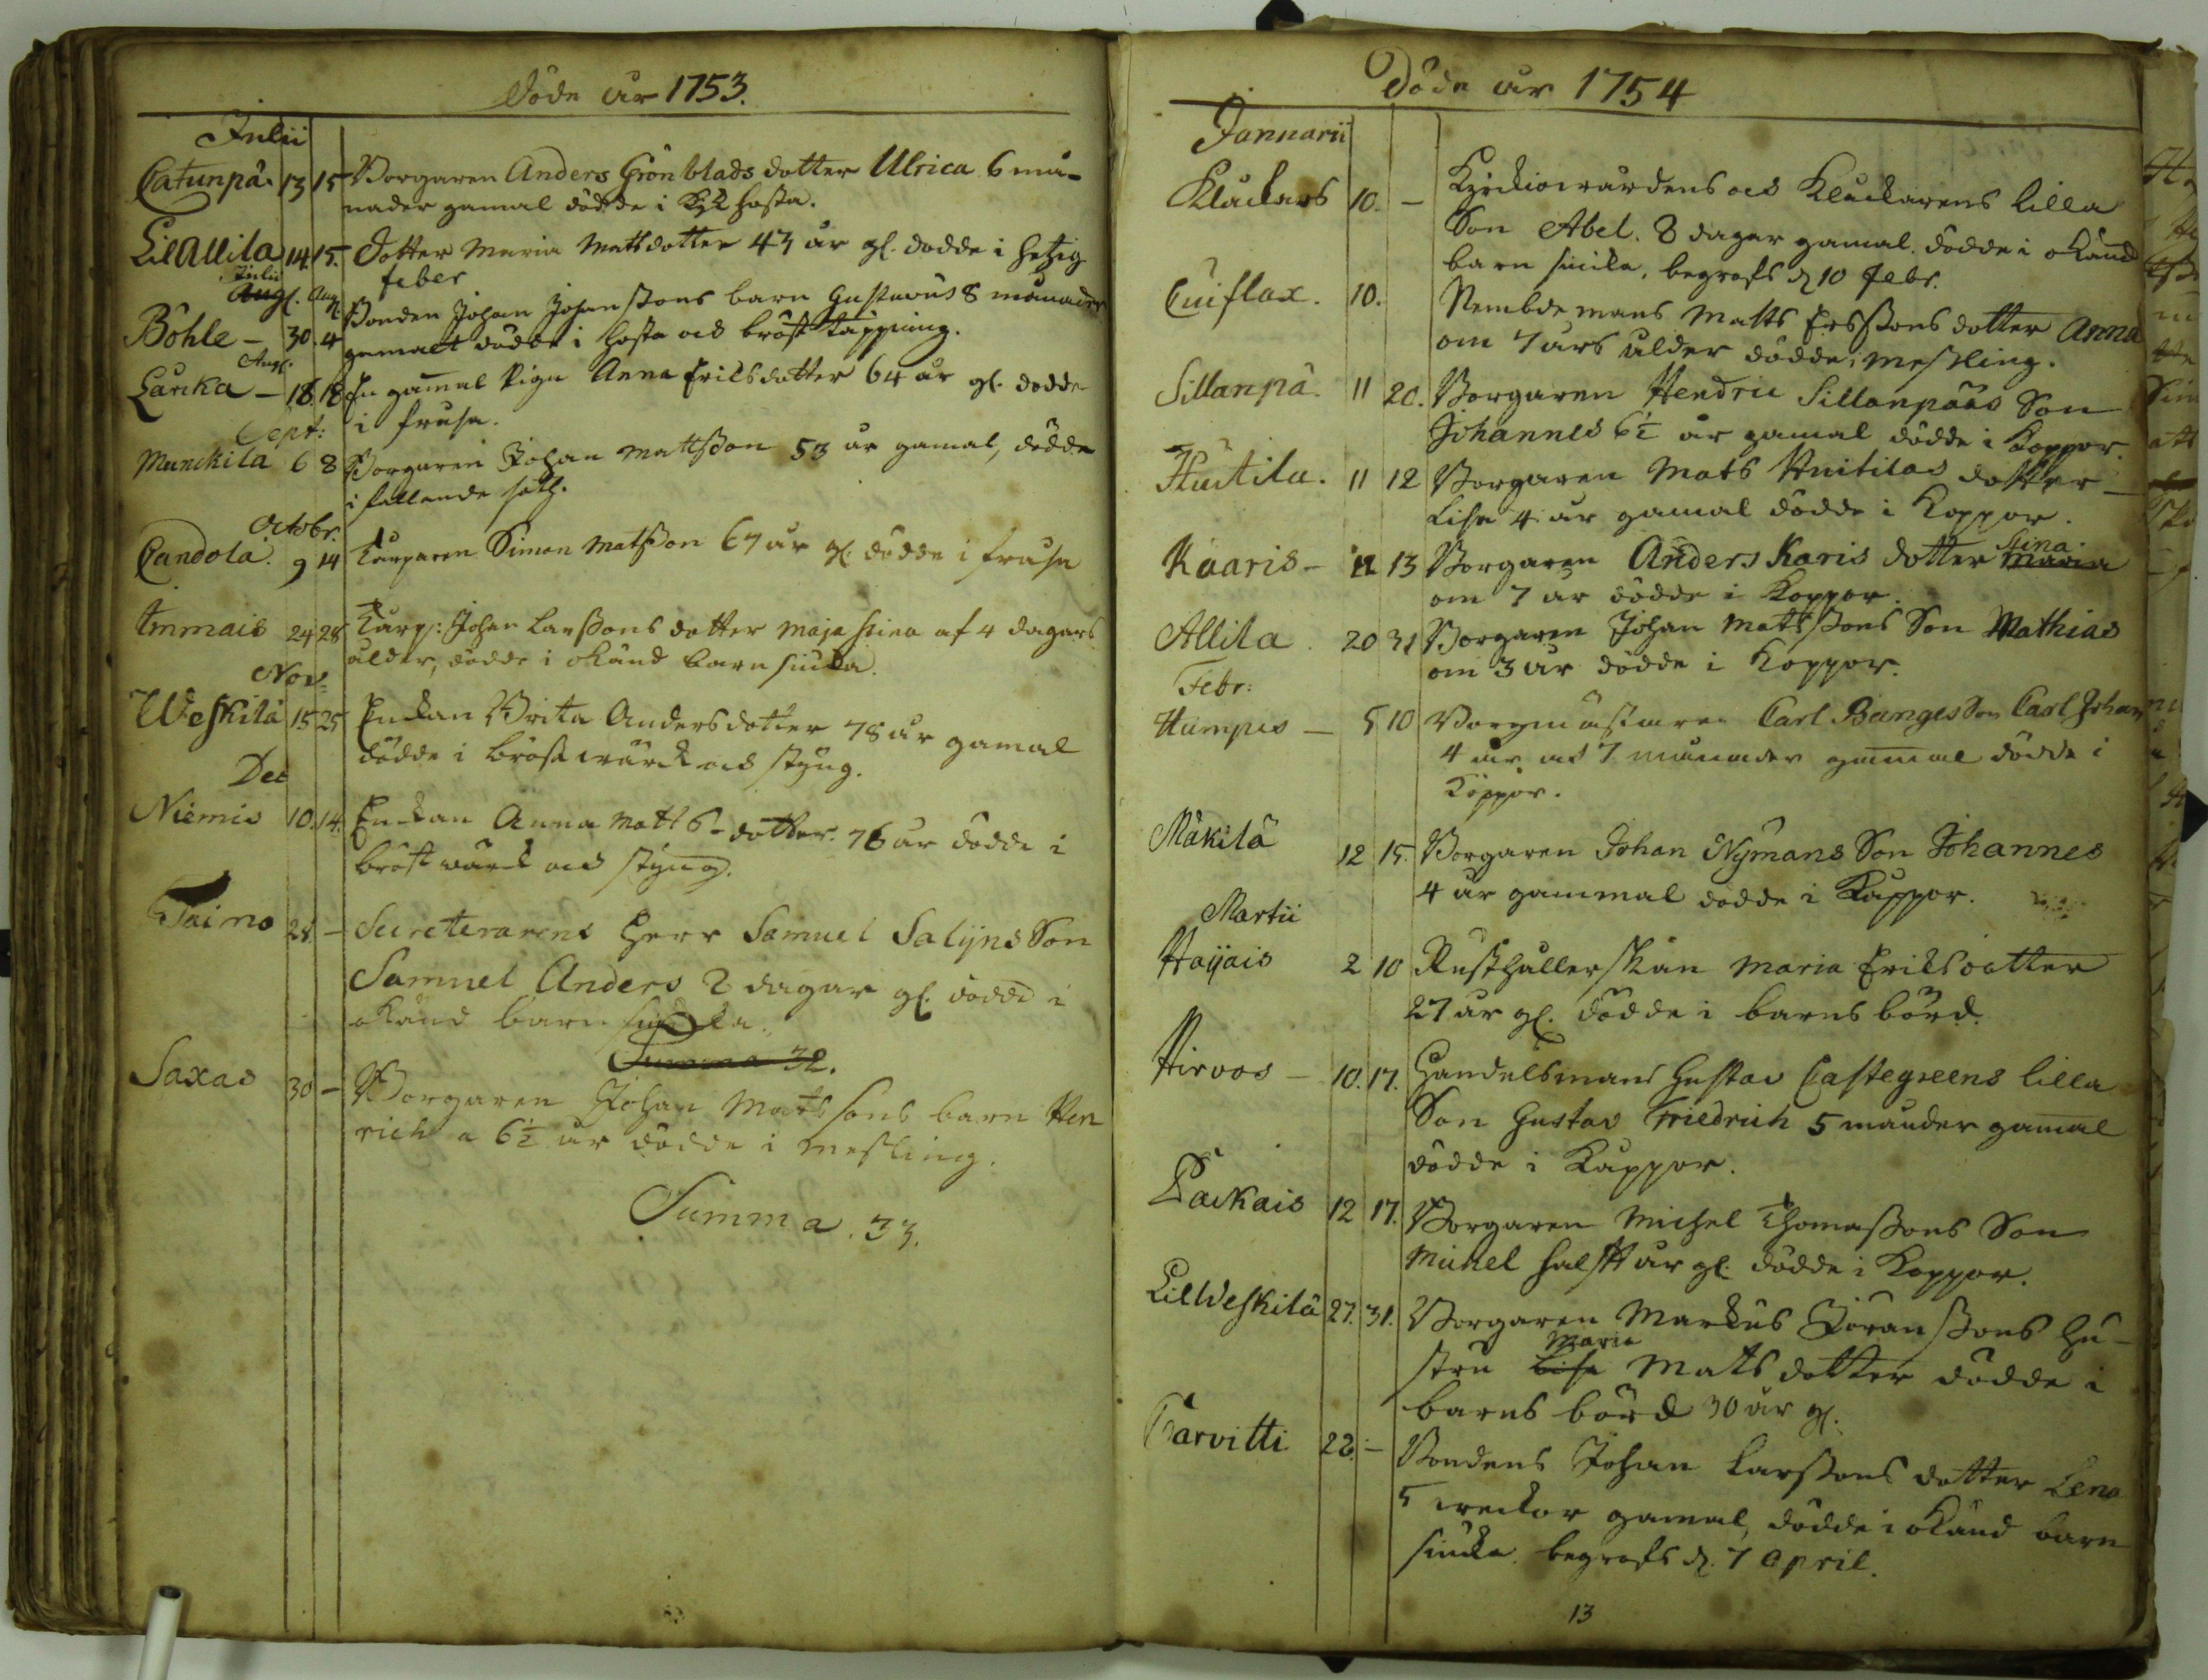 Döde år 1753.
Julii
Catunpä. 13 15 Borgaren Anders Grönblads dotter Ulrica 6 må-
nader gamal dödde i hosta.
Lil Allila 14 15. Dotter Maria Matsdotter 43 år gl. dödde i hetzig
feber
Julii Aug.
Böhle – 30. 4 Bonden Johan Johanssons barn Gustavus 8 månader
gamalt dödde i hosta och bröst täppning.
Augs.
Lauska – 18 18 En gammal Piga Anna Ericsdotter 64 år gl. dödde
i frusa.
Sept:
Munckila 6 8 Borgaren Johan Mattsson 53 år gamal, dödde
i fallande soth.
Octobr.
Candola. 9 14 Torparen Simon Matsson 67 år gl. dödde i frusa
Immais 24 28 Torp: Johan Larssons dotter Maja Stina af 4 dagars
ålder, dödde i okänd barn siuka.
Nov
Weskilä 15 25 Enckan Brita Andersdotter 78 år gamal
dödde i bröstwärck och styng.
Dec
Niemis 10. 14. Enckan Anna Matts-dotter. 76 år dödde i
bröst wärck och styng.
Taimo 28. – Secreterarens Herr Samuel Salijns Son
Samuel Anders 2 dagar gl. dödde i
okänd barn siucka.
Summa 32.
Saxas 30 – Borgaren Johan Matssons barn Hen
rich a 6½ år dödde i mesling.
Summa. 33.
Döde år 1754
Januarii
Kluckars 10. – Kyrckiowärdens och Kluckarens lilla
Son Abel. 8 dagar gamal. dödde i okänd
barn siucka, begrofs d 10 Febr.
Cuiflax. 10. Nembdemans Matts Erssons dotter Anna
om 7 års ålder dödde i mesling.
Sillanpä. 11 20. Borgaren Hendric Sillanpääs Son
Johannes 6½ år gamal dödde i Koppor.
Huitila. 11 12 Borgaren Mats Huitilas dotter
Lisa 4 år gamal dödde i Koppor.
Kaaris – 12 13 Borgaren Anders Karis dotter Stina Maria
om 7 år dödde i Koppor.
Allila. 20 31 Borgaren Johan Matssons Son Mathias
om 3 år dödde i Koppor.
Febr:
Humpis – 5 10 Borgmästaren Carl Banges Son Carl Johan
4 år och 7 månader gammal dödde i
Koppor.
Mäkilä 12 15. Borgaren Johan Nymans Son Johannes
4 år gammal dödde i Kåppor.
Martii
Haijais 2 10 Rusthållerskan Maria Ericsdotter
27 år gl. dödde i barns börd.
Hirvos – 10. 17. Handelsmans Gustav Castegreens lilla
Son Gustav Friedrich 5 månder gamal
dödde i Kåppor.
Packais 12 17. Borgaren Michel Thomassons Son
Michel halft år gl. dödde i Koppor.
Lil Weskilä 27. 31. Borgaren Markus Jöranssons Hu-
Maria
stru Lisa Matsdotter dödde i
barns börd 30 år gl.
Tarvitti 28. – Bondens Johan Larssons dotter Lena
5 weckor gamal, dödde i okänd barn
siucka. begrofs d. 7 April.
13